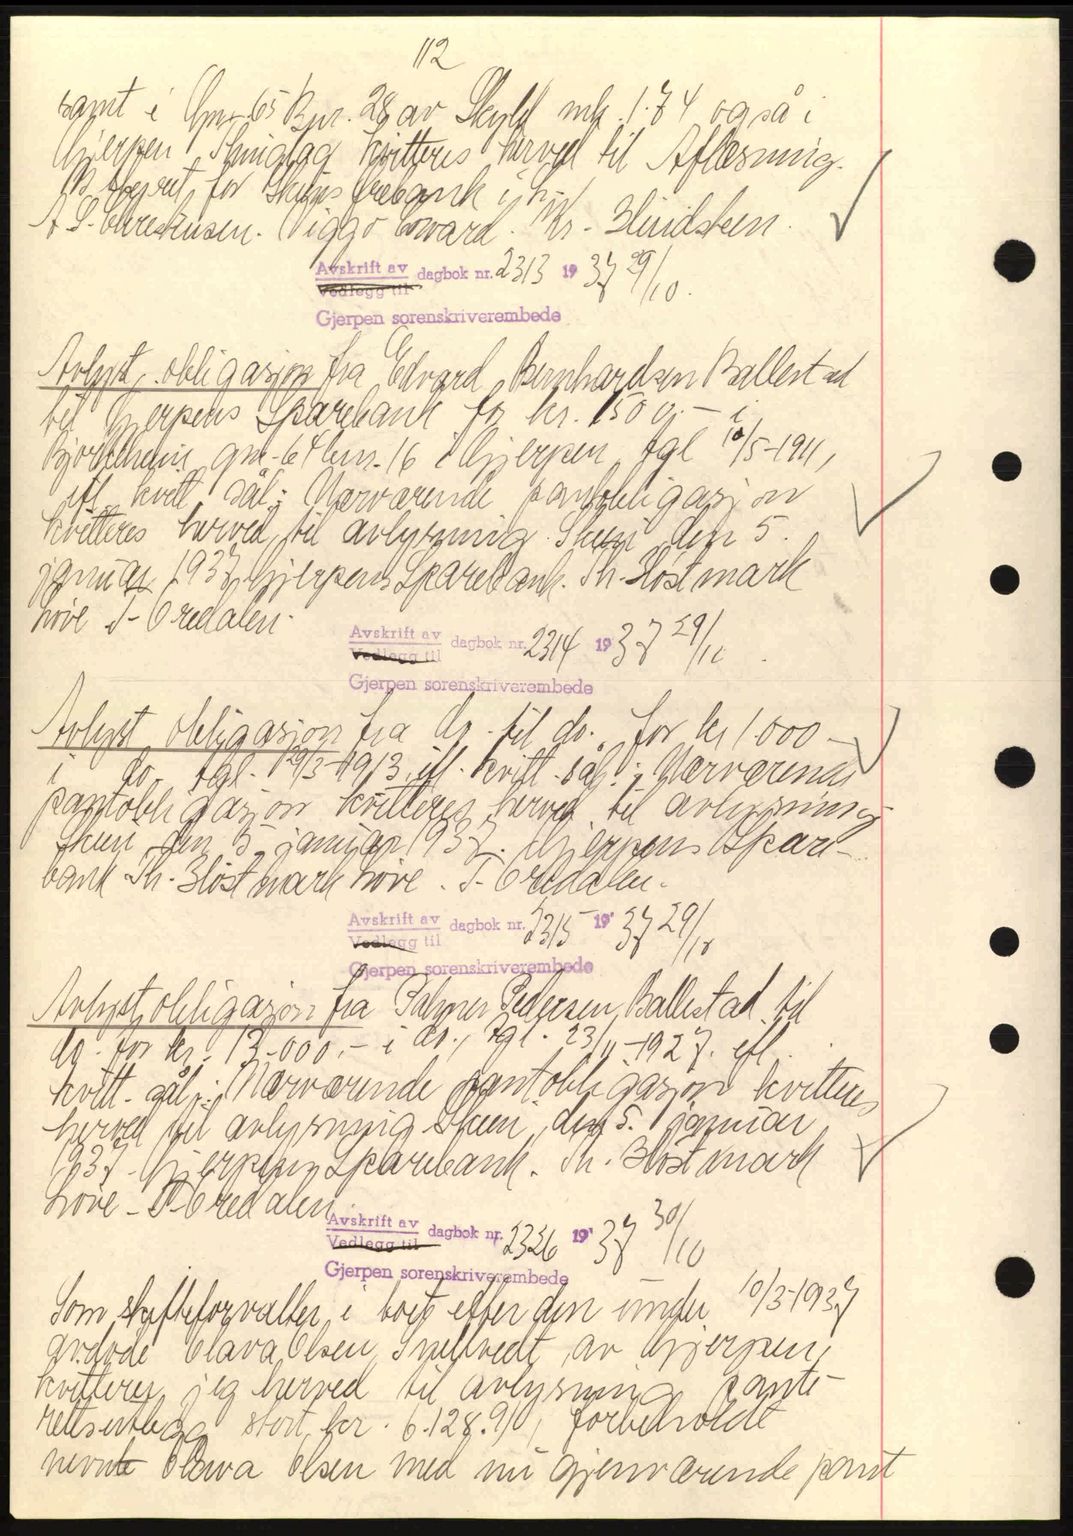 112
samt i Gnr. 65 Bnr. 28 av Skyld mk. 1.74 også i
Gjerpen Thinglag kvitteres herved til Aflæsning.
for Skiens
Viggo
Avskrift av dagbok nr. 2313 1937 29/10.
Vedlegg til
Gjerpen sorenskriverembede
Avlyst obligasjon fra Edvard Bernhardsen Ballestad
til Gjerpens Sparebank for kr. 1500.- i
gnr. 64 bnr. 16 i Gjerpen, tgl 10/5-1911,
ifl. kvitt. sål: Nærværende pantobligasjon
kvitteres herved til avlysning. Skien den 5.
januar 1937 Gjerpens Sparebank. Th. Blostmark
Love. T. Oredalen.
Avskrift av dagbok nr. 2314 1937 29/10.
Vedlegg til
Gjerpen sorenskriverembede
Avlyst obligasjon fra do. til do. for kr 1000.-
i do. tgl. 29/3-1913, ifl. kvitt. sål: Nærværende
pantobligasjon kvitteres herved til avlysning
Skien den 5. januar 1937. Gjerpens Spare-
bank Th. Blostmark Love. T. Oredalen.
Avskrift av dagbok nr. 2315 1937 29/10
Vedlegg til
Gjerpen sorenskriverembede
Avlyst obligasjon fra Palmer Pedersen Ballestad til
do. for kr. 13.000.- i do., tgl. 23/11-1927. ifl.
kvitt. sål.: Nærværende pantobligasjon kvitteres
herved til avlysning Skien, den 5. januar
1937. Gjerpens Sparebank. Th. Blostmark
Love. T. Oredalen.
Avskrift av dagbok nr. 2326 1937 30/10
Vedlegg til
Gjerpen sorenskriverembede
Som skifteforvalter i boet efter den under 10/3-1937
avdøde Olava Olsen Snelltvedt av Gjerpen,
kvitterer jeg herved til avlysning pante-
rettsutlegg stort kr. 6.128.90, forbeholdt
nevnte Olava Olsen med nu gjenværende pant